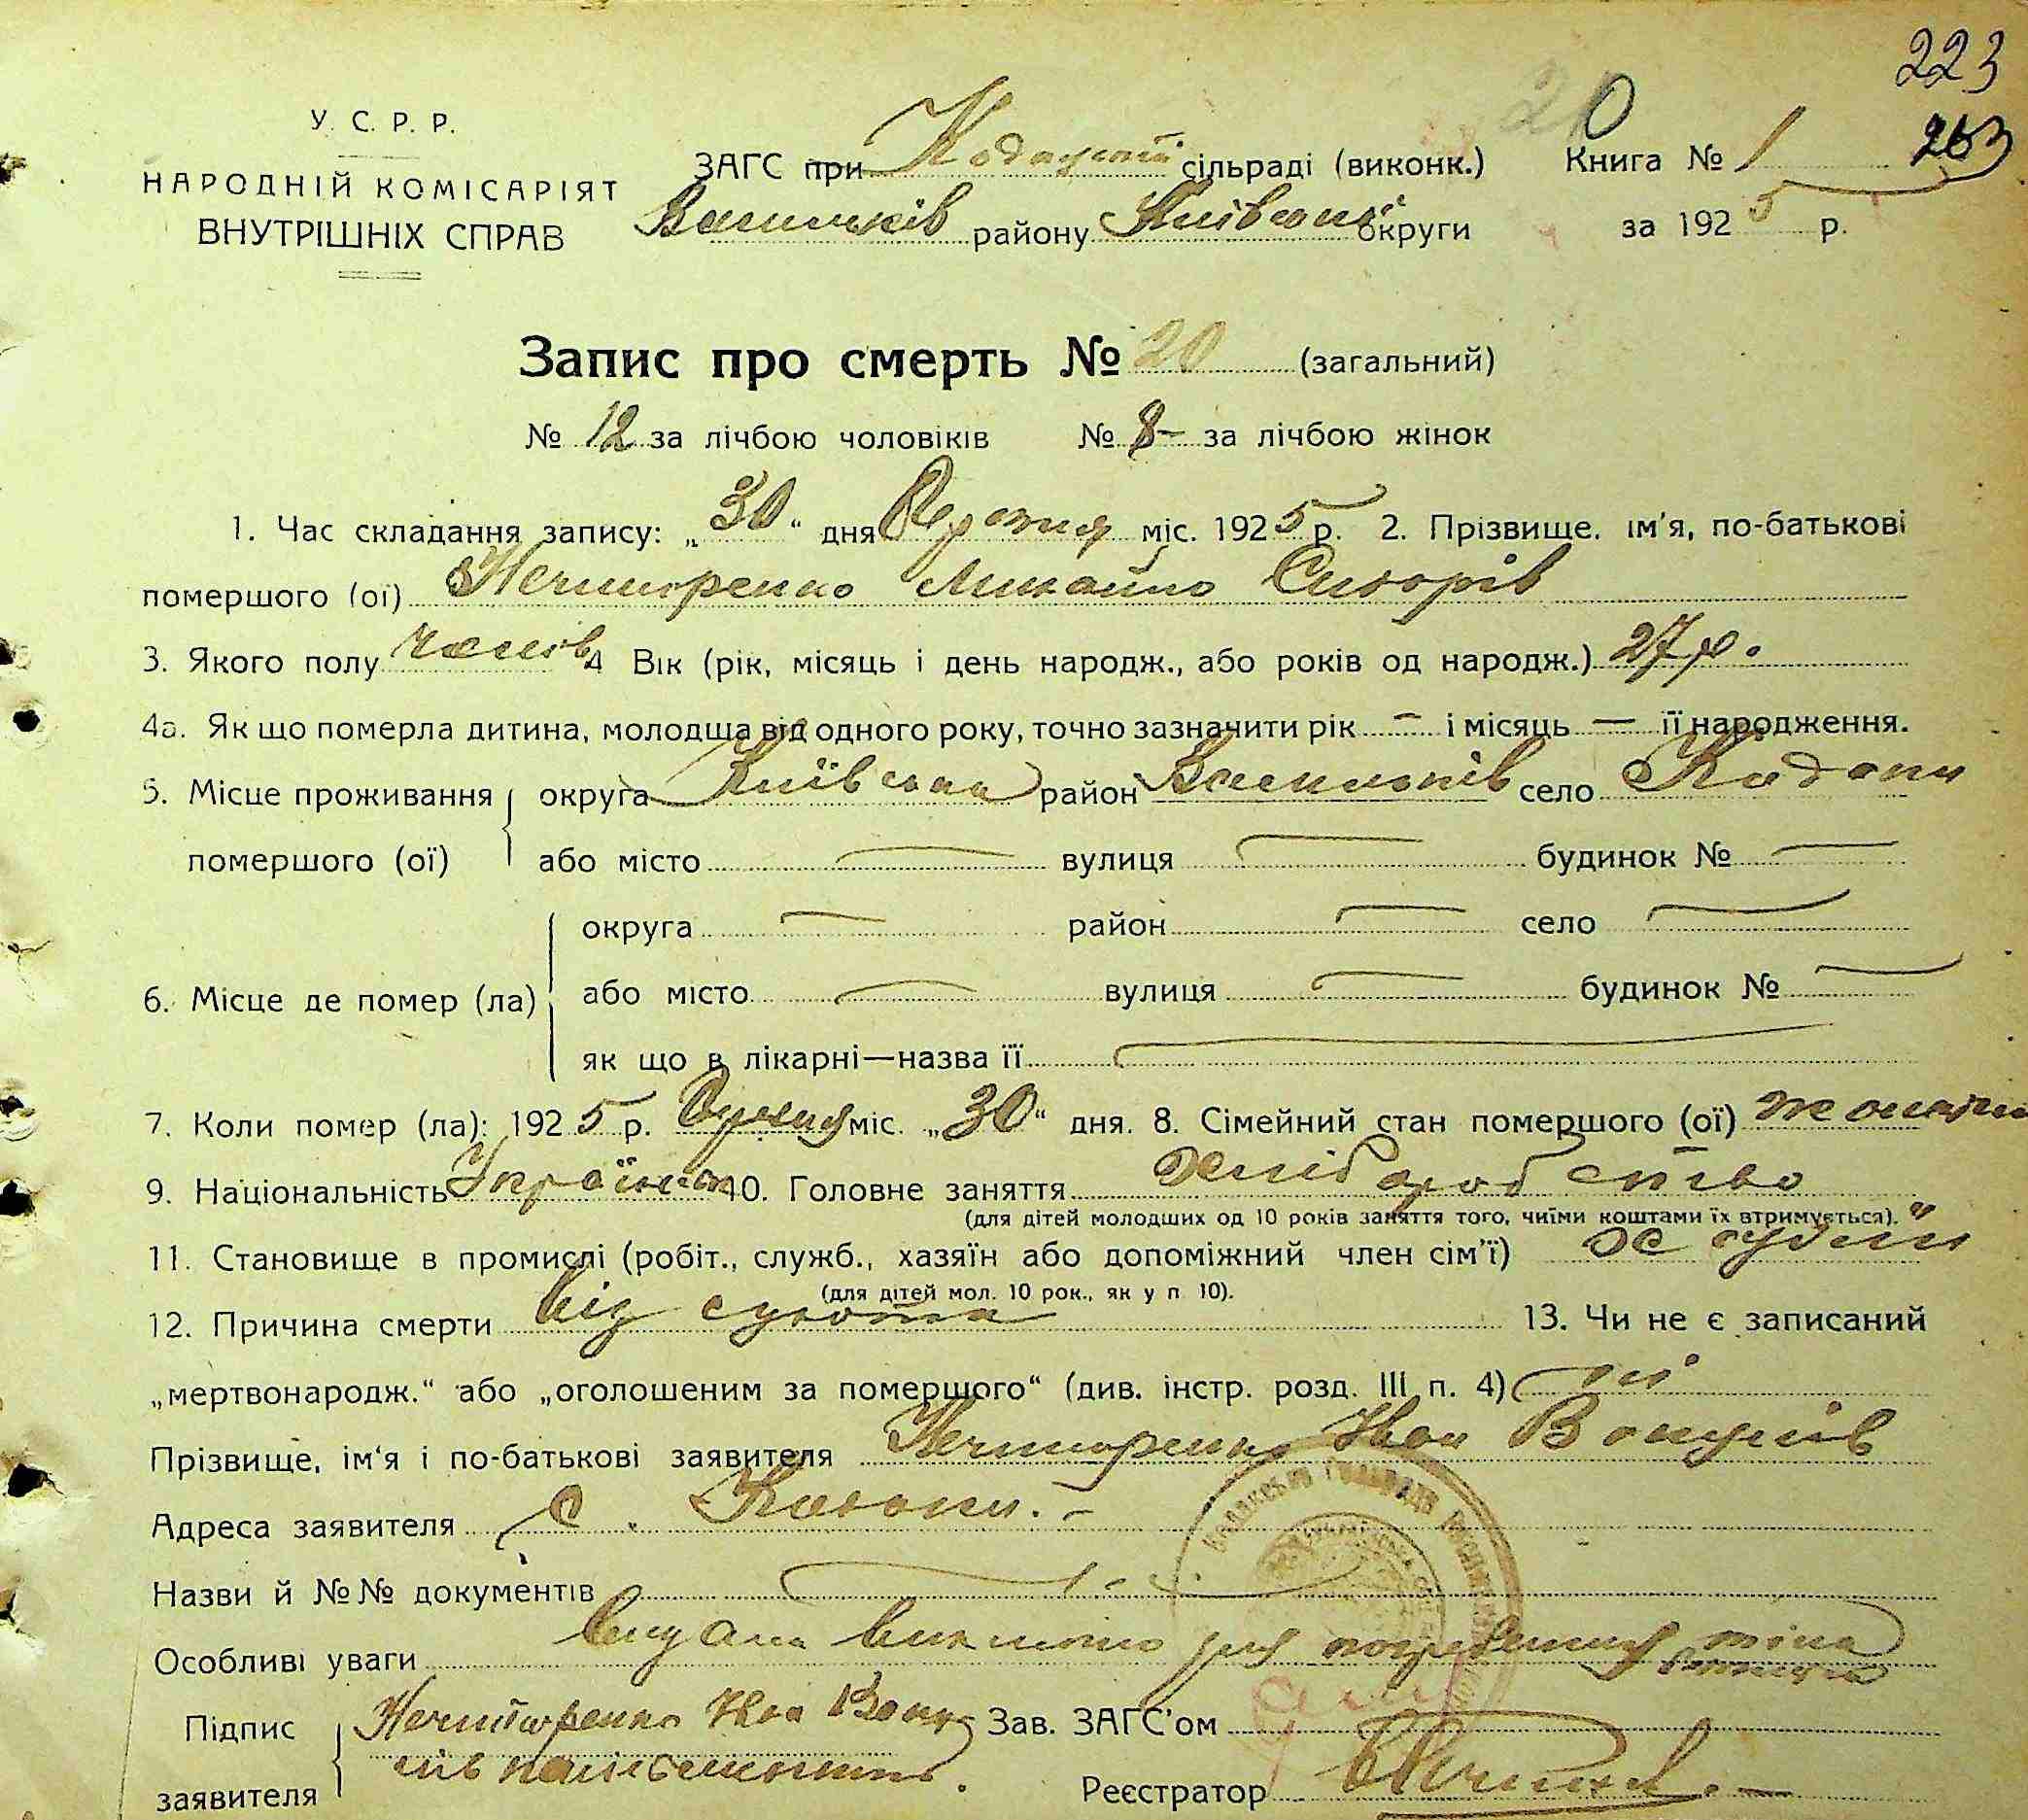 223
У. С. Р. Р.
20
НАРОДНІЙ КОМІСАРІЯТ
ВНУТРІШНІХ СПРАВ
ЗАГС при Кодацькій сільраді (виконк.) Книга № 1 263
Васильків району Київської округи за 1925 р.
Запис про смерть № 20 (загальний)
№ 12 за лічбою чоловіків № 8 – за лічбою жінок
1. Час складання запису: „30“ дня міс. 1925 р. 2. Прізвище, ім'я, по-батькові
помершого (ої) Нечипоренко Михайло Сидорів
3. Якого полу чолов. 4 Вік (рік, місяць і день народж., або років од народж.) 27 р.
4а. Як що померла дитина, молодша від одного року, точно зазначити рік — і місяць — її народження.
5. Місце проживання округа Київська район Васильків село Кодаки
помершого (ої) або місто — вулиця — будинок № —
округа — район — село —
6. Місце де помер (ла) або місто — вулиця — будинок № —
як що в лікарні—назва її —
7. Коли помер (ла): 1925 р. міс. „30“ дня. 8. Сімейний стан помершого (ої)
9. Національність 10. Головне заняття хліборобство
(для дітей молодших од 10 років заняття того, чиїми коштами їх втримується).
11. Становище в промислі (робіт., служб., хазяїн або допоміжний член сім'ї)
(для дітей мол. 10 рок., як у п 10).
12. Причина смерти від сухота 13. Чи не є записаний
„мертвонародж.“ або „оголошеним за помершого“ (див. інстр. розд. III п. 4) ні
Прізвище, ім'я і по-батькові заявителя Нечипоренко Іван
Адреса заявителя с. Кодаки. –
Назви й №№ документів
Особливі уваги видана для погребения тіла
Підпис Нечипоренко Зав. ЗАГС'ом
заявителя Реєстратор